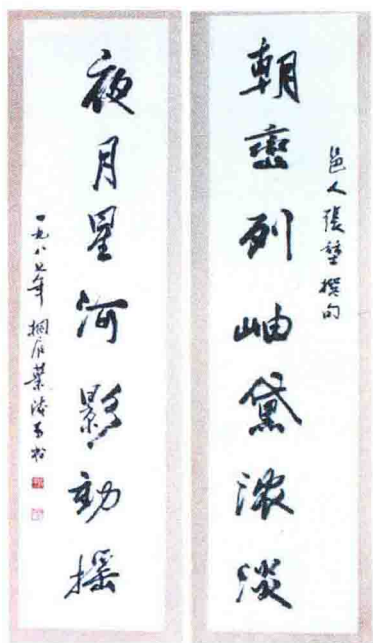 朝巒列岫黛浓淡
邑人張撰句
夜月星河影動搖
一九八五年 桐庐葉浅予书